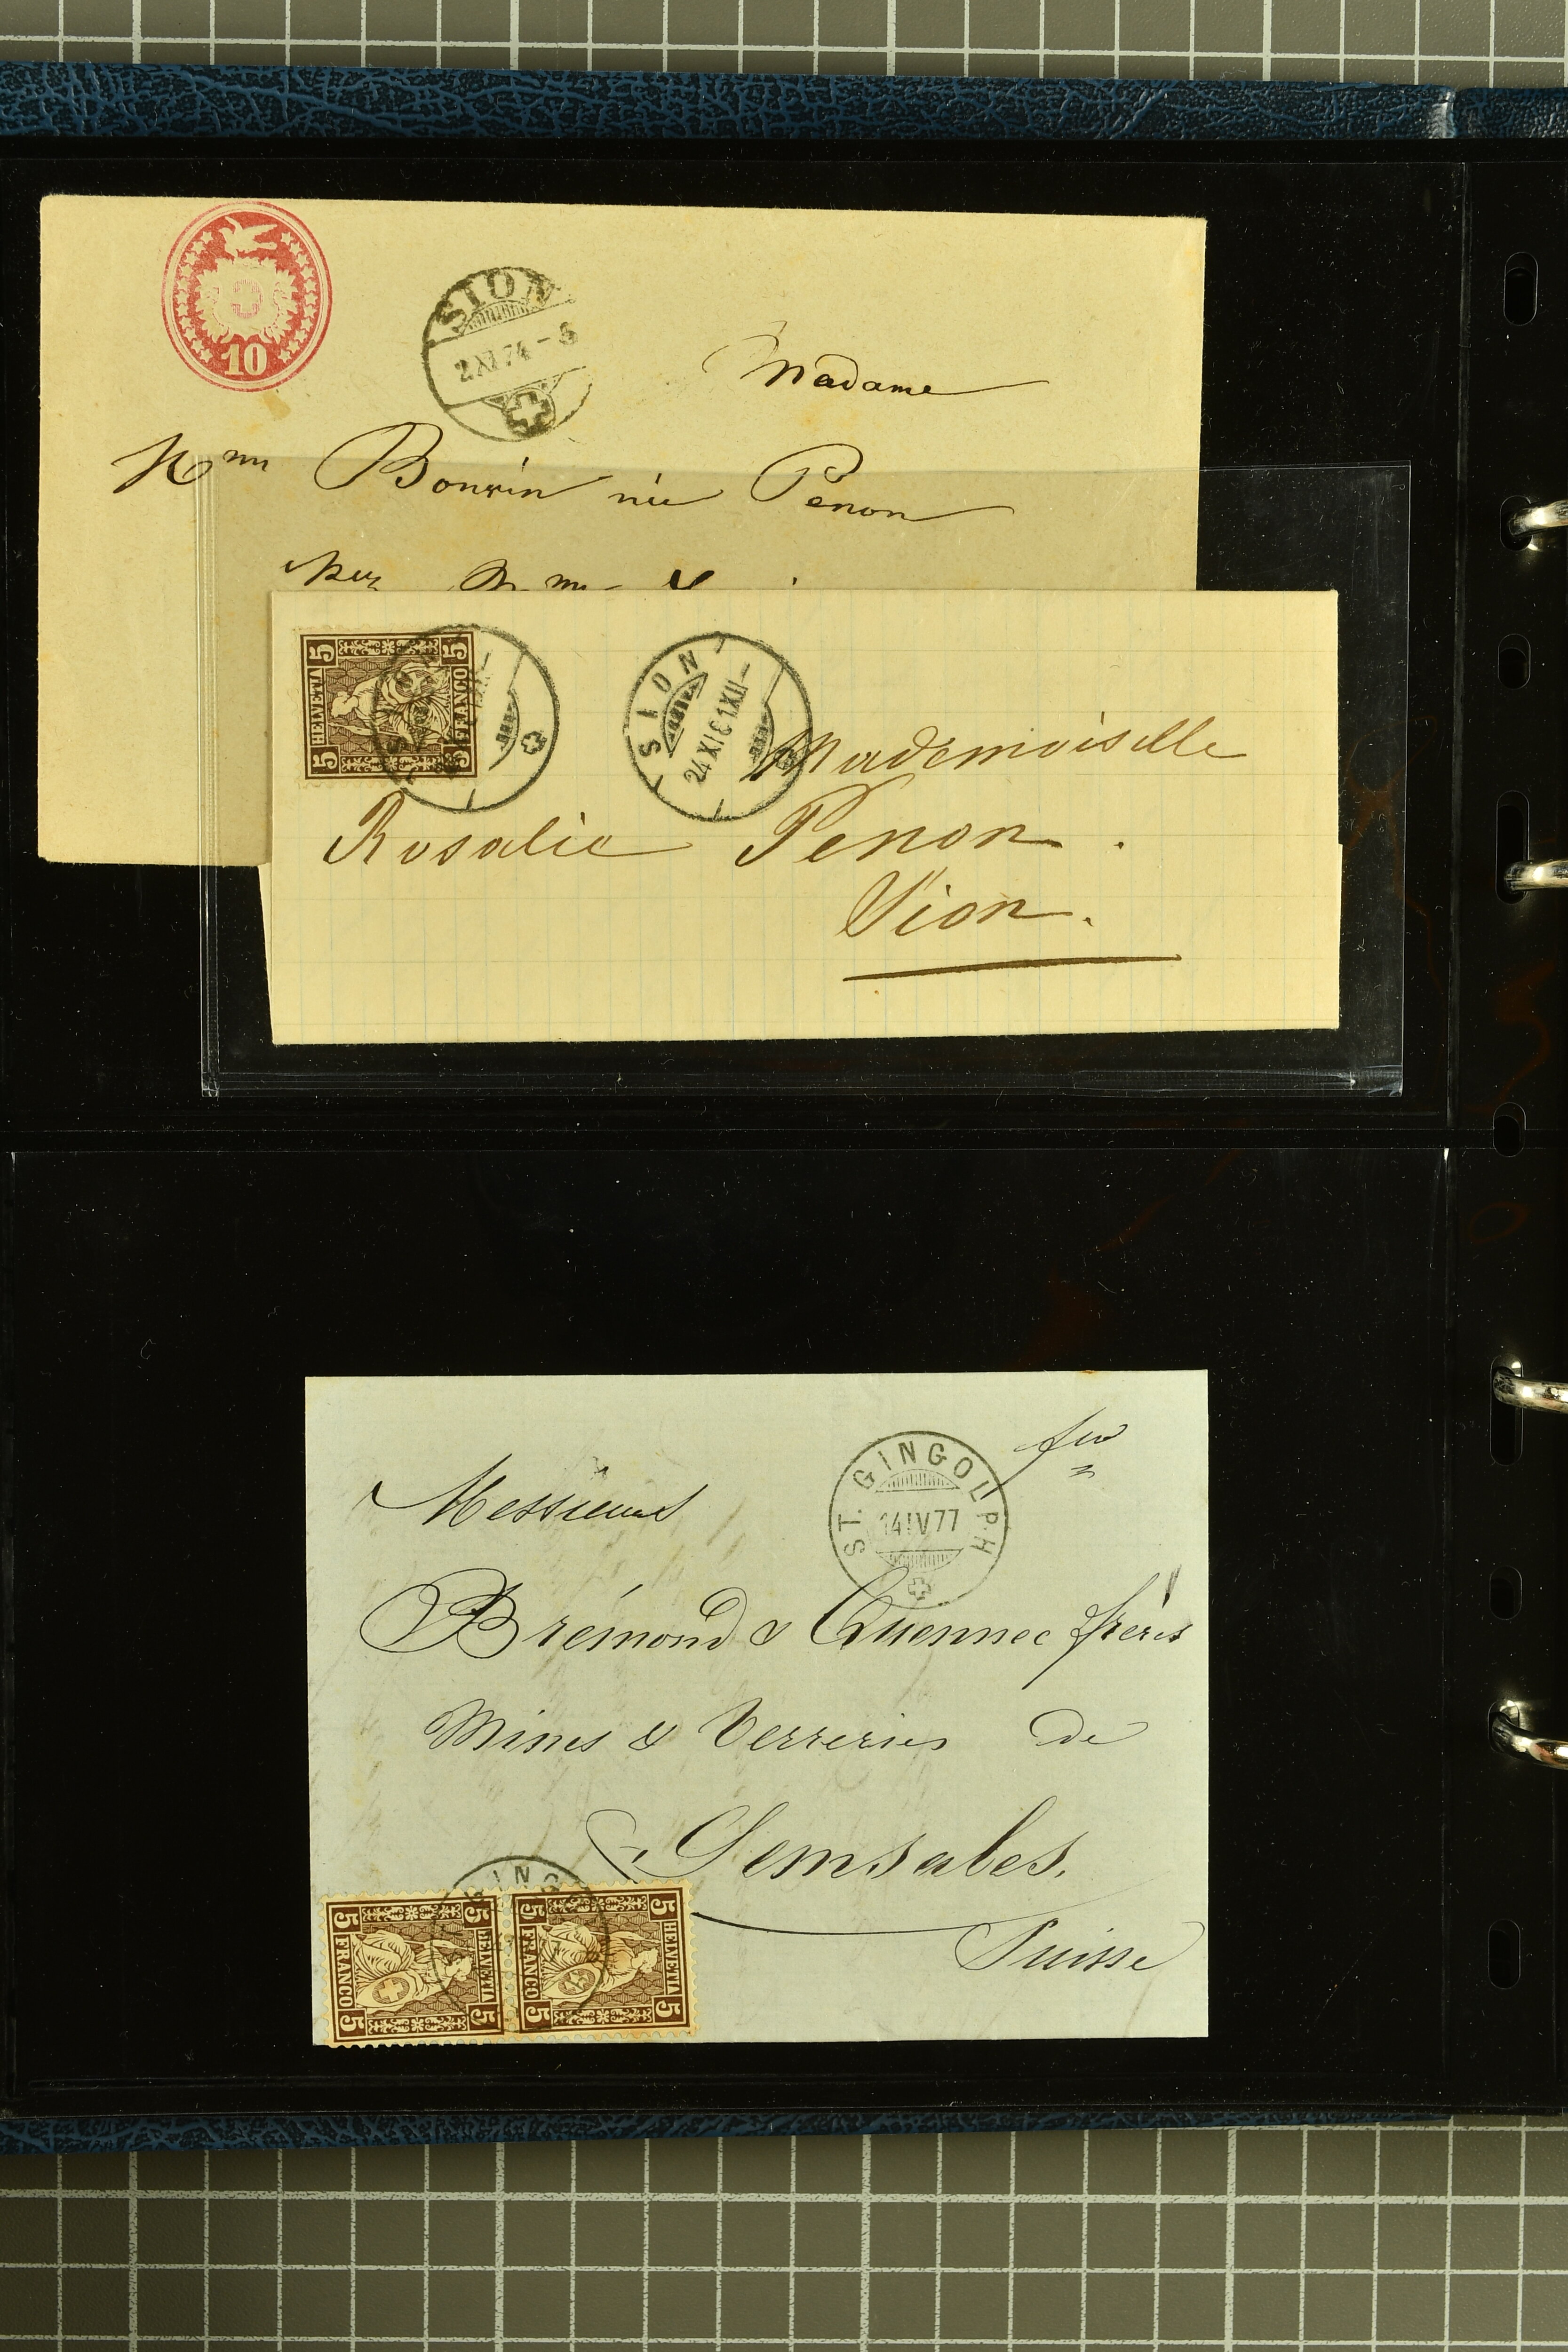 10
SION
2 XI 74 - 5
Madame
Bonvin née Penon
5 HELVETIA 5
5 FRANCO 5
SION
24 XI 81 XII -
Mademoiselle
Rosalie Penon.
Sion.
ST. GINGOLPH
14 IV 77
Messieurs
Brémond & Quennec frères
Mines & Verreries de
Semsales.
Suisse
GING
5 FRANCO 5
5 HELVETIA 5
5 FRANCO 5
5 HELVETIA 5